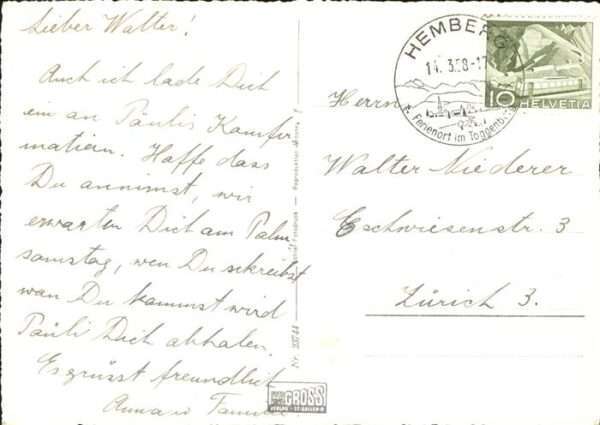 Lieber Walter!
Auch ich lade Dich
ein an Paulis Konfir
mation. Hoffe dass
Du annimst, wir
erwarten Dich am Palm
samstag, wen Du schreibst
wan Du kommst wird
Pauli Dich abholen.
Es grüsst freundlich
Anna u. Famil
HEMBERG
14. 3.58-17
Ferienort im Toggenburg
10 HELVETIA
Herrn
Walter Niederer
Eschwiesenstr. 3
Zürich 3.
Nr.
GROSS
VERLAG ST. GALLEN